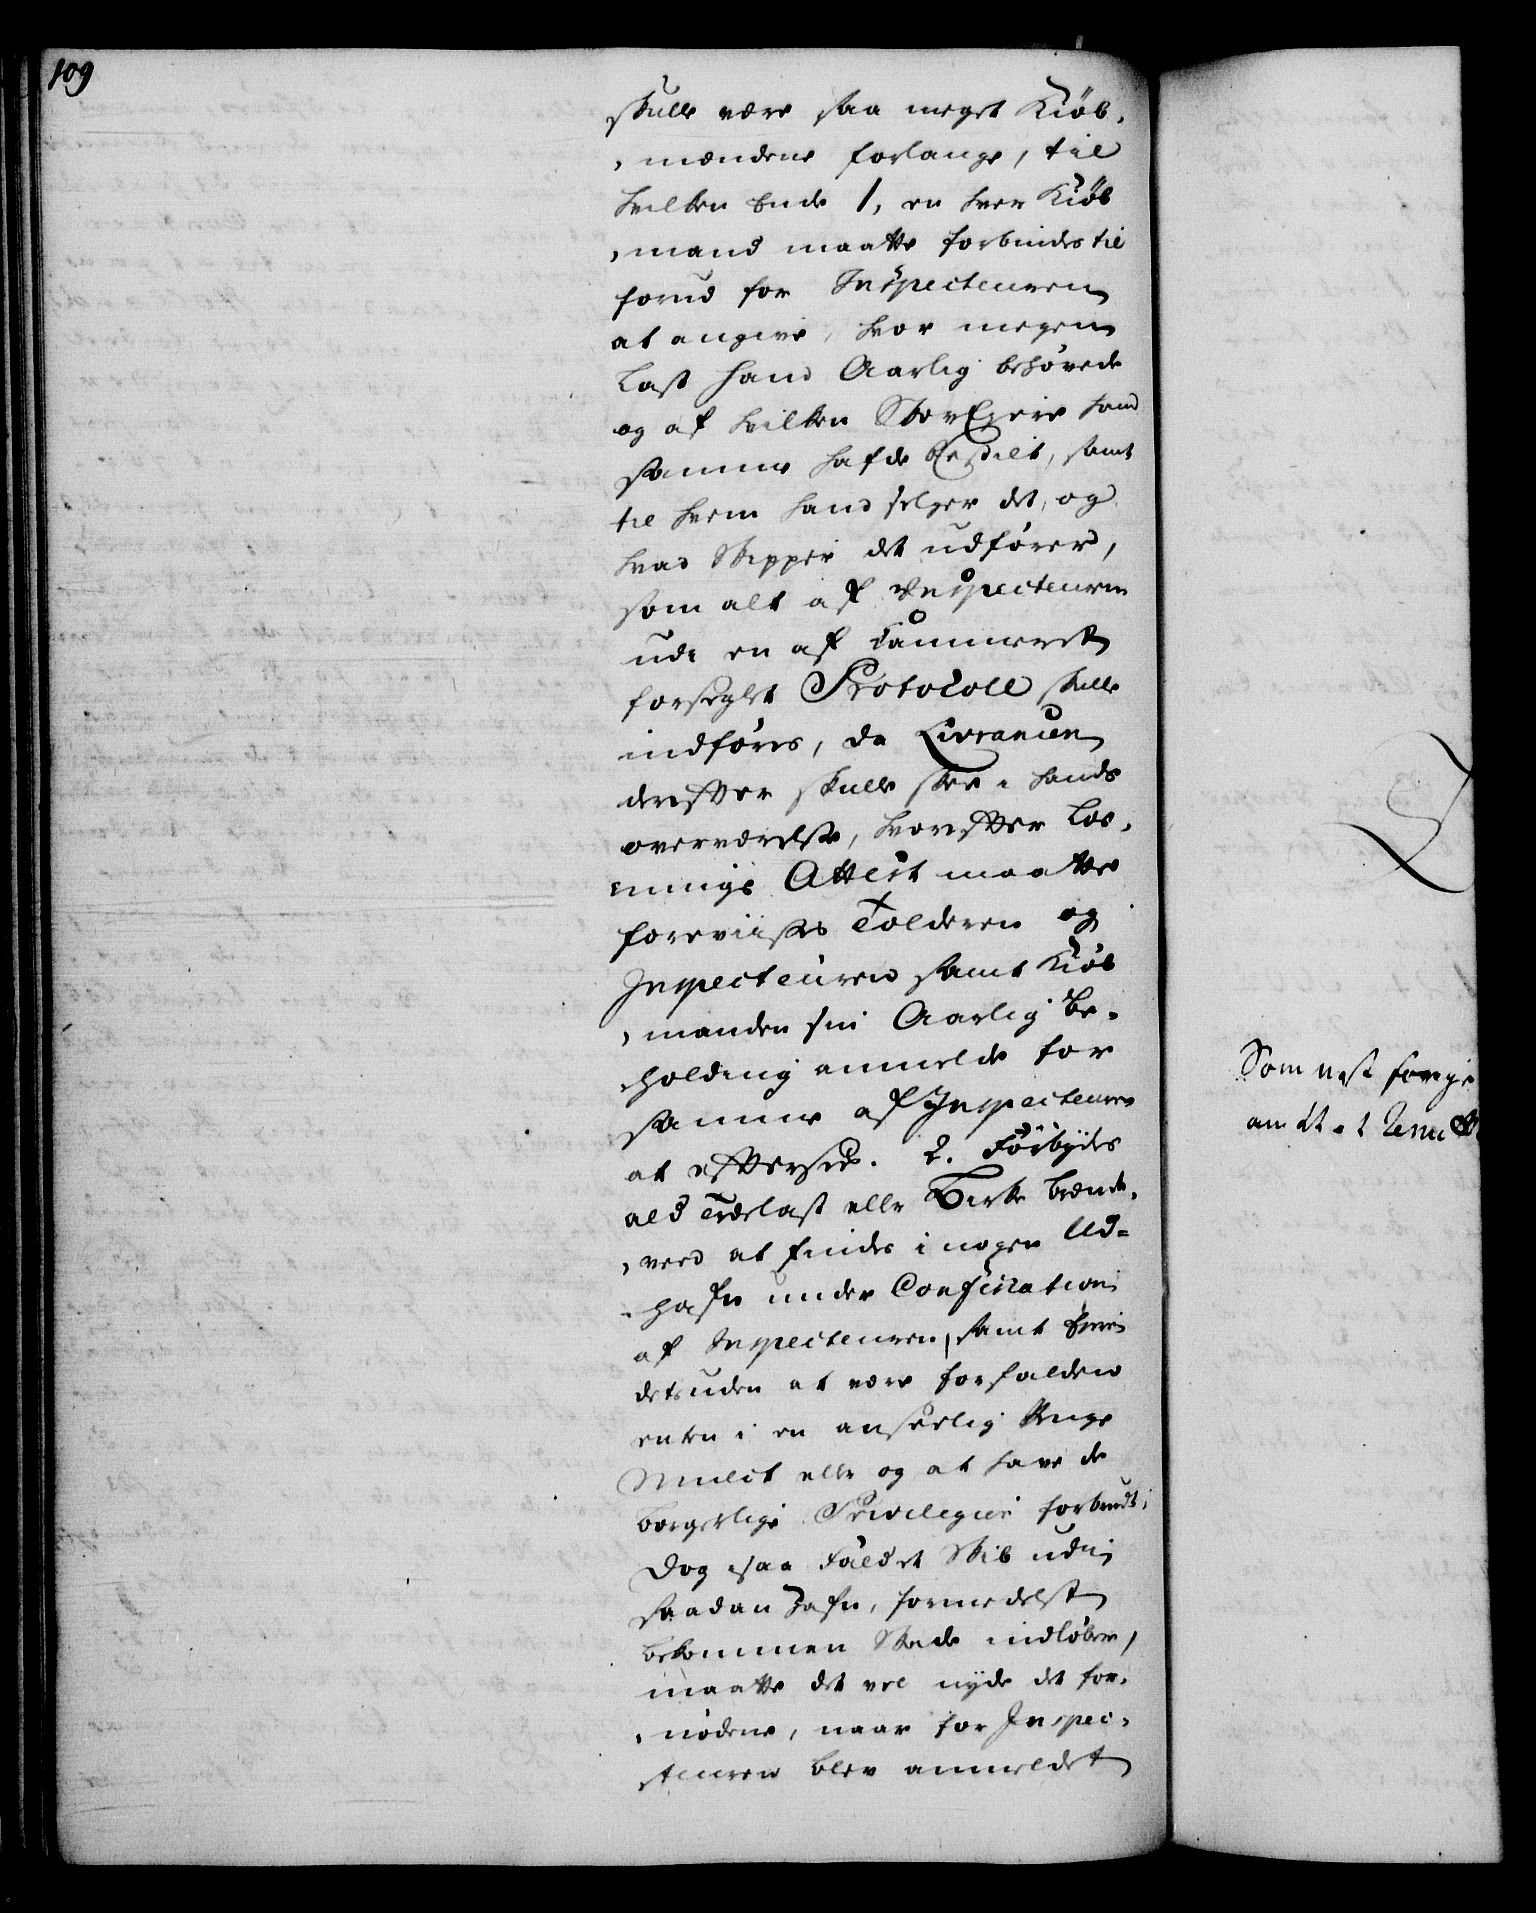 109
skulle være saa meget Kiøb,
,mændene forlange, til
hvilken Ende 1, en hver Kiøb
,mand maatte forbindes til
forud for Inspecteuren
at angive, hvor megen
Last hand Aarlig behövede
og af hvilken Skov Eyere hand
samme hafde bestilt, samt
til hvem hand selger det, og
hvad Skipper det udförer,
som alt af Inspecteuren
udi en af Cammeret
forseglet Protocoll skulle
indföres, da Livrancen
derefter skulle skee i hands
overværelse, hvorefter Los,
nings Attest maatte
foreviises Tolderen og
Inspecteuren samt Kiøb
,manden sin Aarlig Be,
holding anmelde for
samme af Inspecteuren
at eftersees. 2. Forbydes
ald Trælast eller Birke Brænde,
,veed at findes i nogen Ud=
hafn under Confiscation
af Inspecteuren, samt
desuden at være forfalden
enten i en anseelig Penge
Mulct eller og at have de
borgerlige Privilegier forbrudt,
Dog saa faldt et Skib udi
saadan Hafn, formedelst
bekommen Skade indlöber,
maatte det vel nyde det for,
,nödene, naar for Inspec,
teuren blev anmeldet
Som nest foregi
amdt at